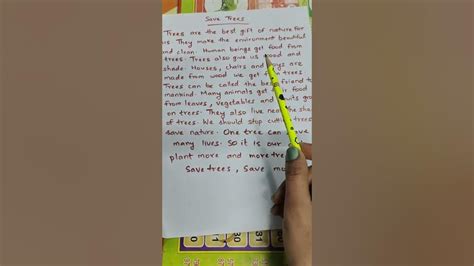 Save Trees
Trees are the best gift of nature for
us. They make the environment beautiful
and clean. Human beings get food from
trees. Trees also give us wood and
shade. Houses, chairs and are
made from wood we get trees
Trees can be called the best friend to
mankind. Many animals get food
from leaves, vegetables and
on trees. They also live near the
of trees. We should stop
save nature. One tree can
many lives. So it is our
plant more and more
Save trees, Save
30
31